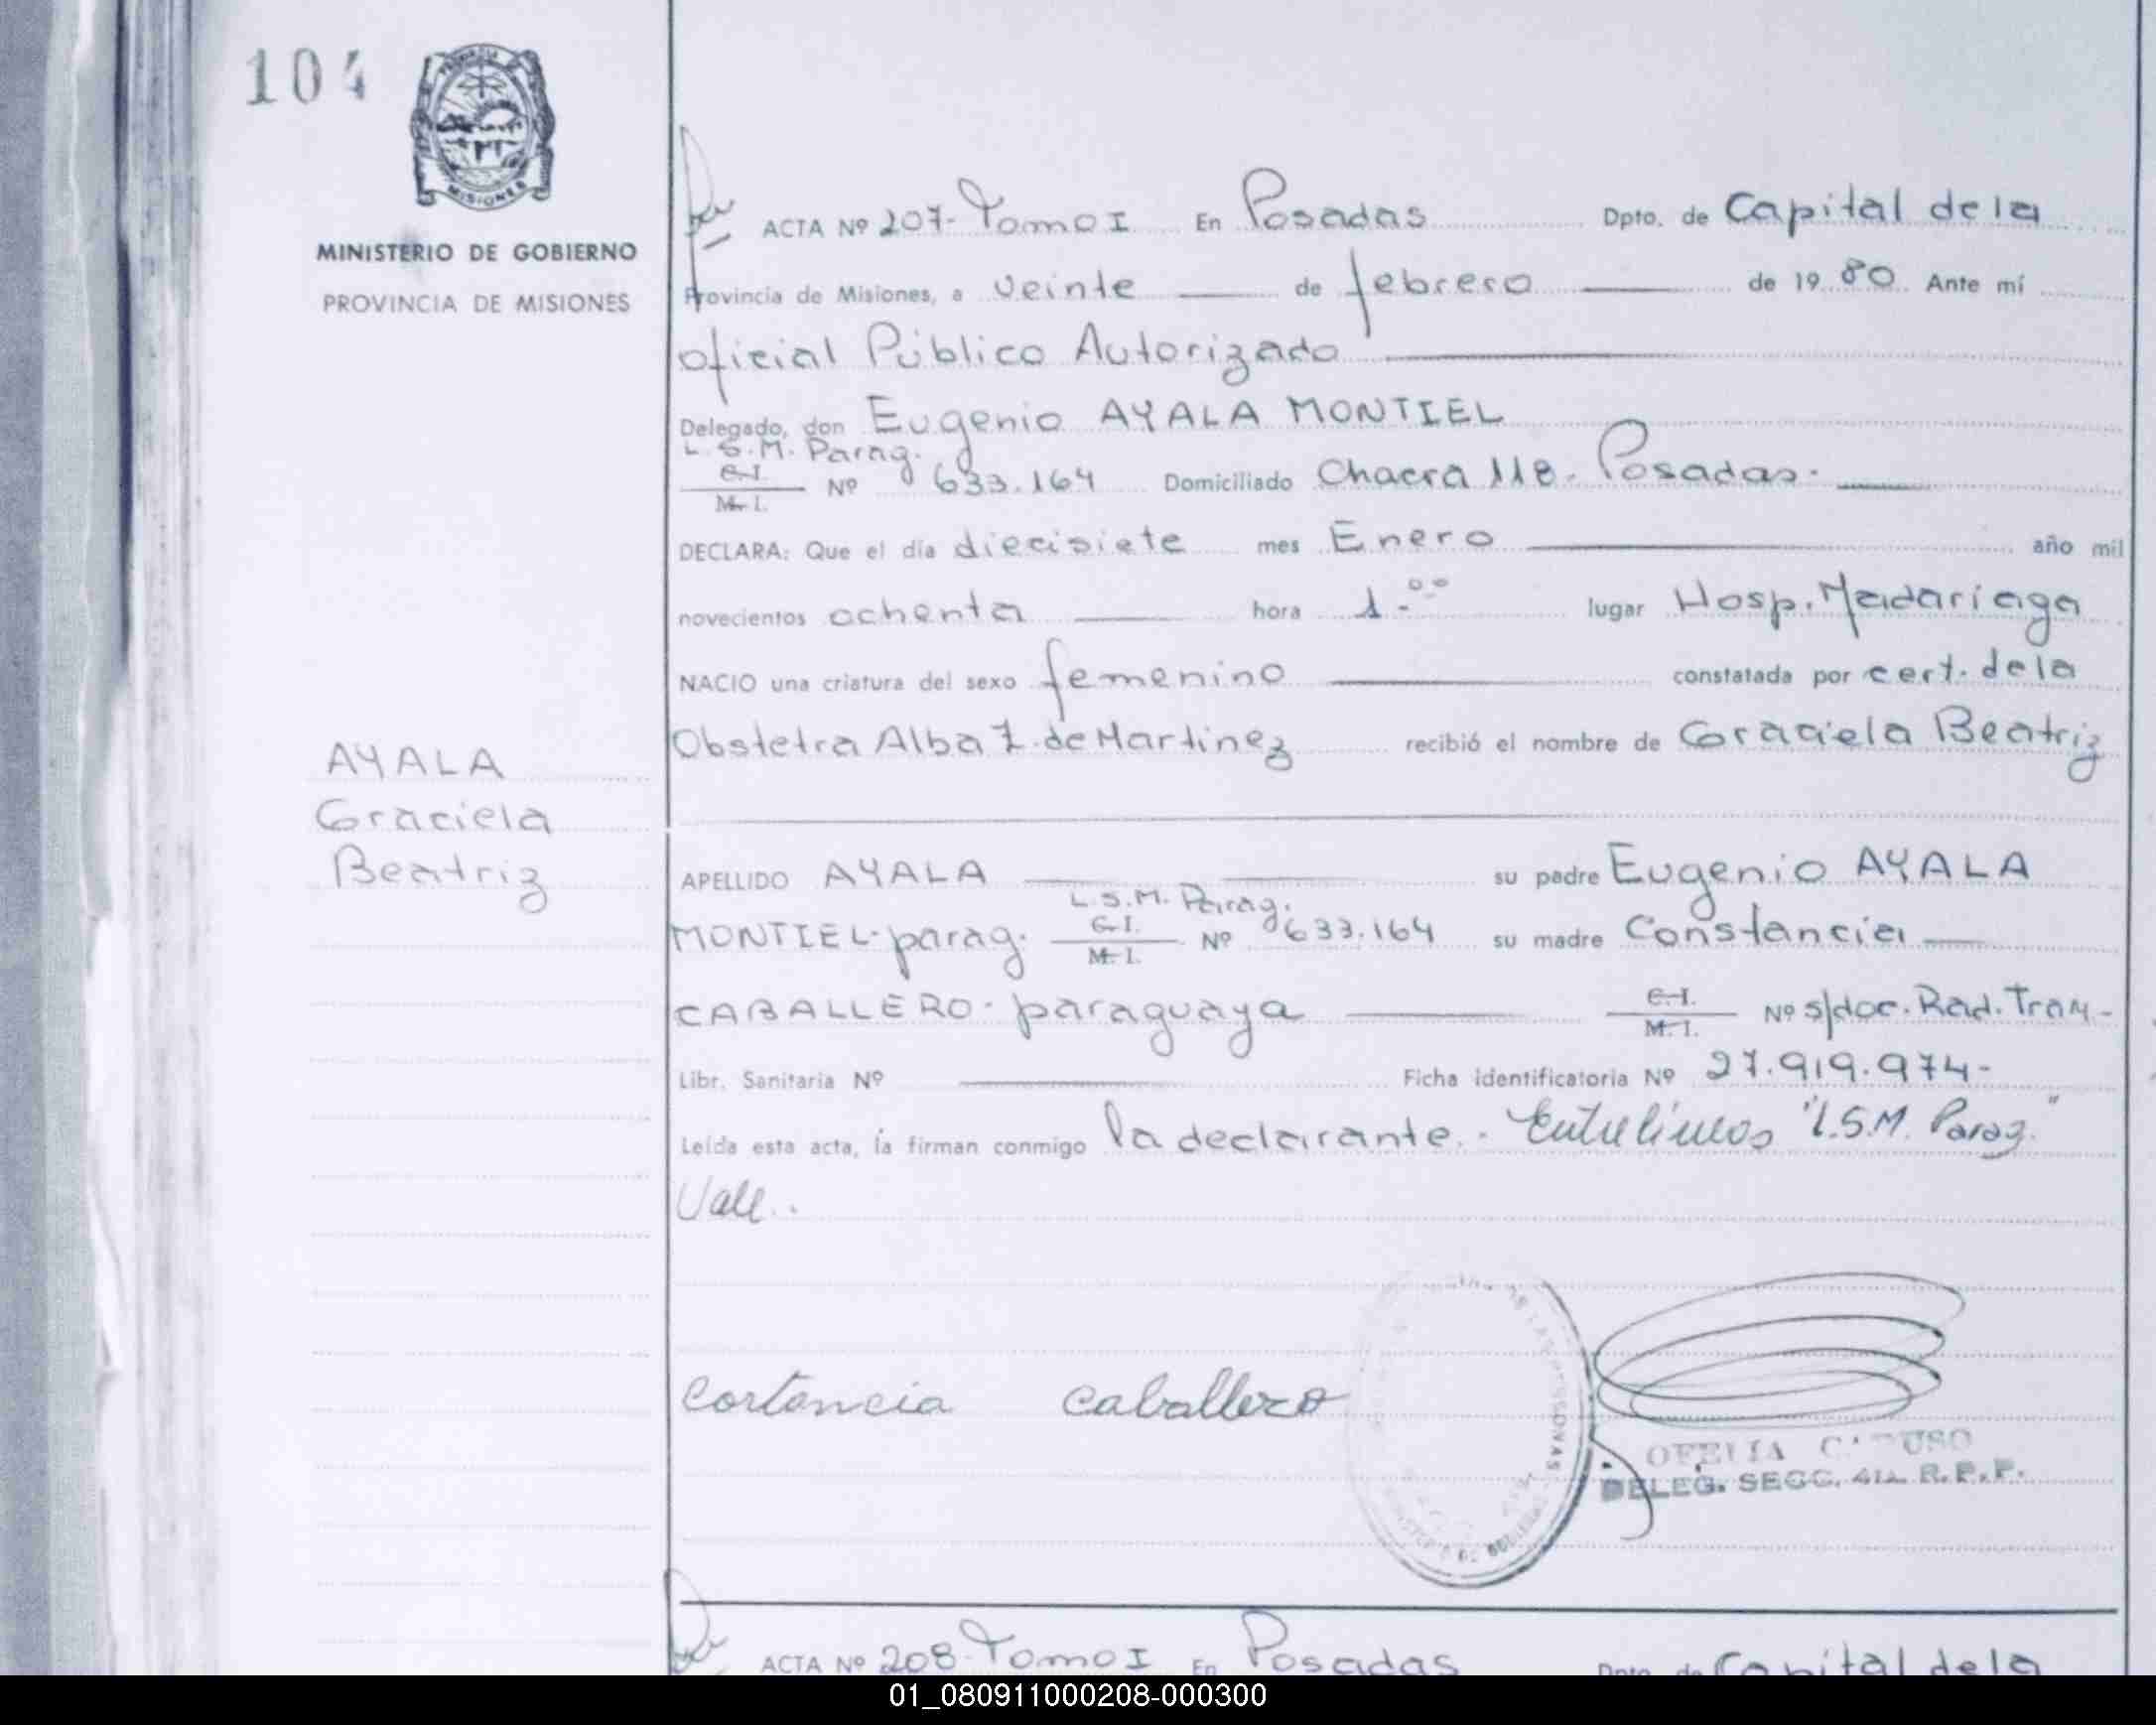 104
PROVINCIA
MISIONES
MINISTERIO DE GOBIERNO
PROVINCIA DE MISIONES
ACTA Nº 207- Tomo I En Posadas Dpto. de Capital de la
Provincia de Misiones, a veinte de febrero de 19 80. Ante mí
oficial Público Autorizado
Delegado, don Eugenio AYALA MONTIEL
L.S.M. Parag.
C.I.
M.I. Nº 633.164 Domiciliado Chacra 118. Posadas.
DECLARA: Que el día diecisiete mes Enero año mil
novecientos ochenta hora 1.00 lugar Hosp. Madariaga
NACIO una criatura del sexo femenino constatada por cert. de la
Obstetra Alba Z. de Martinez recibió el nombre de Graciela Beatriz
AYALA
Graciela
Beatriz
APELLIDO AYALA su padre Eugenio AYALA
L.S.M. Parag.
MONTIEL- parag. C.I. M.I. Nº 633.164 su madre Constancia
CABALLERO- paraguaya C.I. M.I. Nº s/doc. Rad. Tram-
Libr. Sanitaria Nº Ficha identificatoria Nº 27.919.974-
Leída esta acta, la firman conmigo la declarante.- Entrelíneas "L.S.M. Parag."
Vale.
Cortancia Caballero
OFELIA
DELEG. SECC. 4ta. R.P.P.
ACTA Nº 208- Tomo I En Posadas Dpto. de Capital de la
01_080911000208-000300